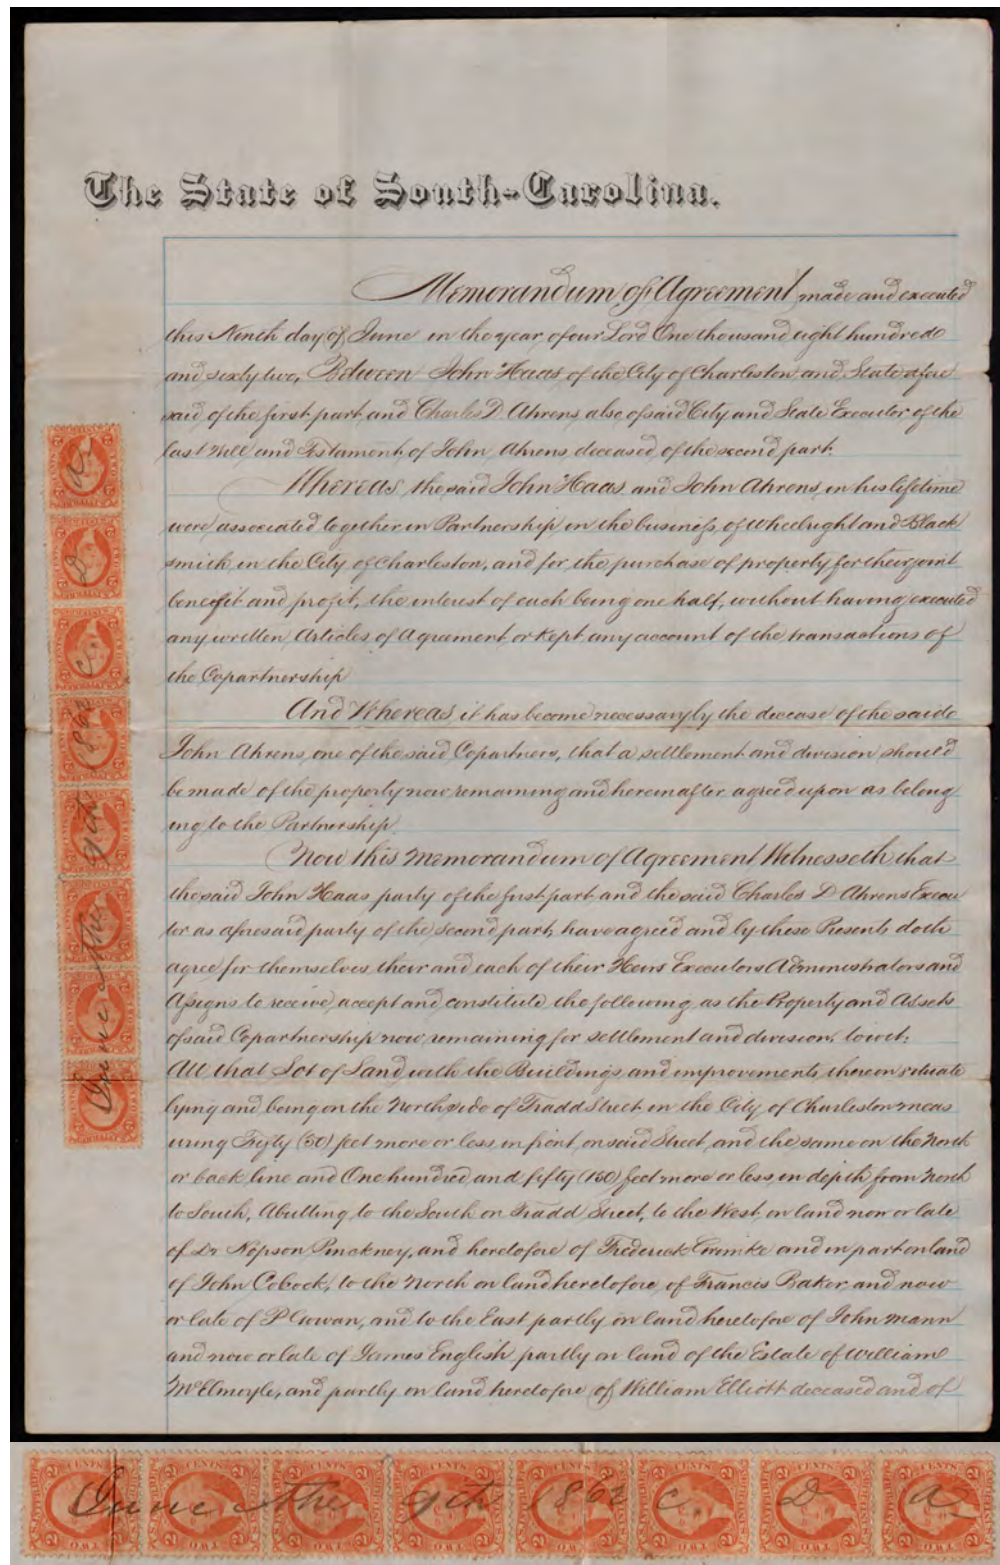 The State of South-Carolina.
Memorandum of Agreement made and executed
this Ninth day of June in the year of our Lord One thousand eight hundred
and sixty two, Between John Haas of the City of Charleston and State afore
said of the first part and Charles D. Ahrens also of said City and State Executor of the
last Will and Testament of John Ahrens deceased of the second part.
Whereas the said John Haas and John Ahrens in his lifetime
were associated together in Partnership in the business of Wheelright and Black
smith in the City of Charleston, and for the purchase of property for their joint
benefit and profit, the interest of each being one half, without having executed
any written Articles of Agreement or kept any account of the transactions of
the Copartnership
And Whereas it has become necessary by the decease of the said
John Ahrens one of the said Copartners, that a settlement and division should
be made of the property now remaining and hereinafter agreed upon as belong
ing to the Partnership.
Now this Memorandum of Agreement Witnesseth that
the said John Haas party of the first part and the said Charles D Ahrens Execu
tor as aforesaid party of the second part, have agreed and by these Presents doth
agree for themselves their and each of their Heirs Executors Administrators and
Assigns to receive, accept and constitute the following as the Property and Assets
of said Copartnership now remaining for settlement and division, towit:
All that Lot of Land with the Buildings and improvements thereon situate
lying and being on the North side of Tradd Street in the City of Charleston meas
uring Fifty (50) feet more or less in front on said Street, and the same on the North
or back line and One hundred and fifty (150) feet more or less in depth from North
to South, Abutting to the South on Tradd Street, to the West on land now or late
of Dr Pinckney, and heretofore of Frederick Grimke and in part on land
of John Cobock, to the North on land heretofore of Francis Baker and now
or late of P Cowan, and to the East partly on land heretofore of John Mann
and now or late of James English partly on land of the Estate of William
McElmoyle, and partly on land heretofore of William Elliott deceased and of
June the 9th 1862 C. D. A
2 CENTS 2 CENTS 2 CENTS 2 CENTS 2 CENTS 2 CENTS 2 CENTS 2 CENTS
June the 9th 1862 C. D A
TWO TWO TWO TWO TWO TWO TWO TWO